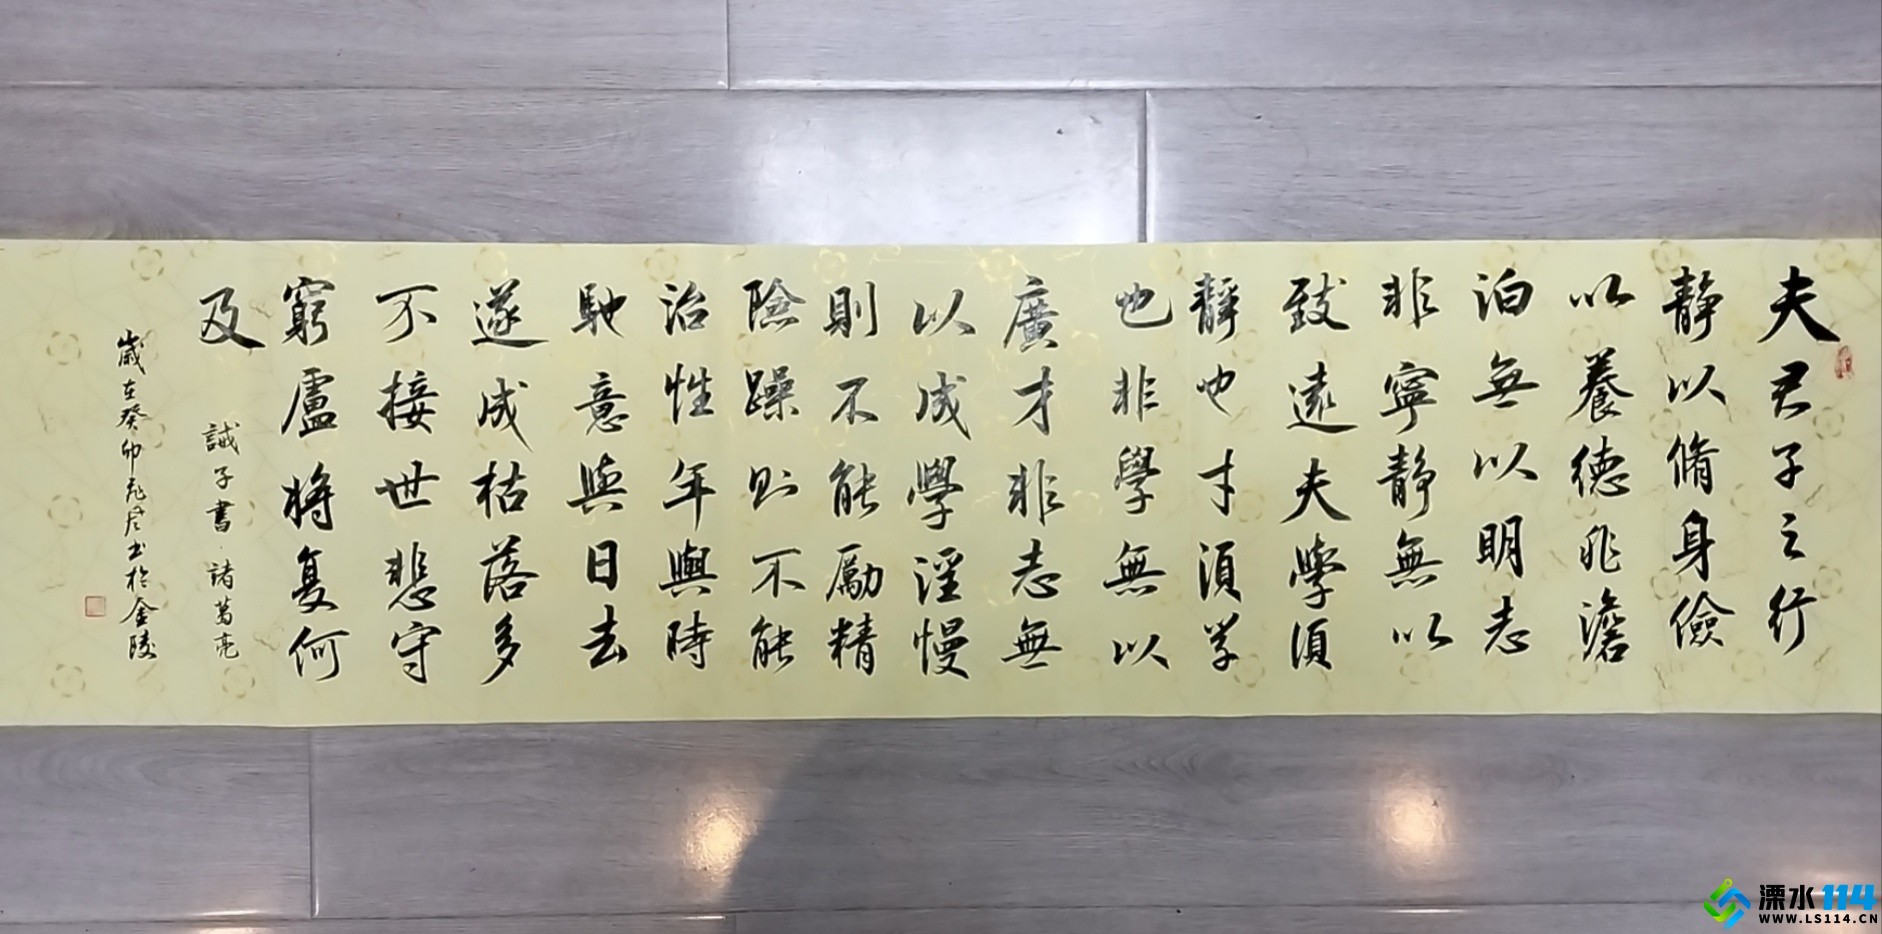 夫君子之行
静以脩身儉
以養德非澹
泊無以明志
非寧静無以
致遠夫學須
静也才須学
也非學無以
廣才非志無
以成學淫慢
則不能勵精
險躁則不能
治性年與時
馳意與日去
遂成枯落多
不接世悲守
窮廬將复何
及
誡子書·諸葛亮
歲在癸卯 书於金陵
溧水114
WWW.LS114.CN